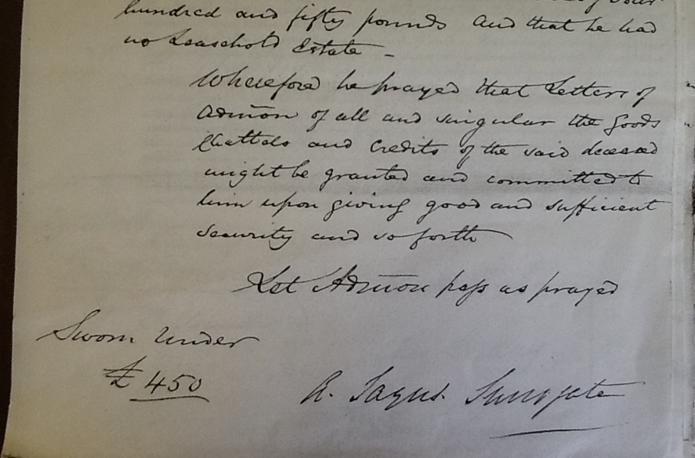 hundred and fifty pounds and that he had
no Leasehold Estate –
Wherefore he prayed that Letters of
Admõn of all and singular the Goods
Chattels and Credits of the said deceased
might be granted and committed to
him upon giving good and sufficient
security and so forth
Let Admõn pass as prayed
Sworn Under
£450
Surrogate